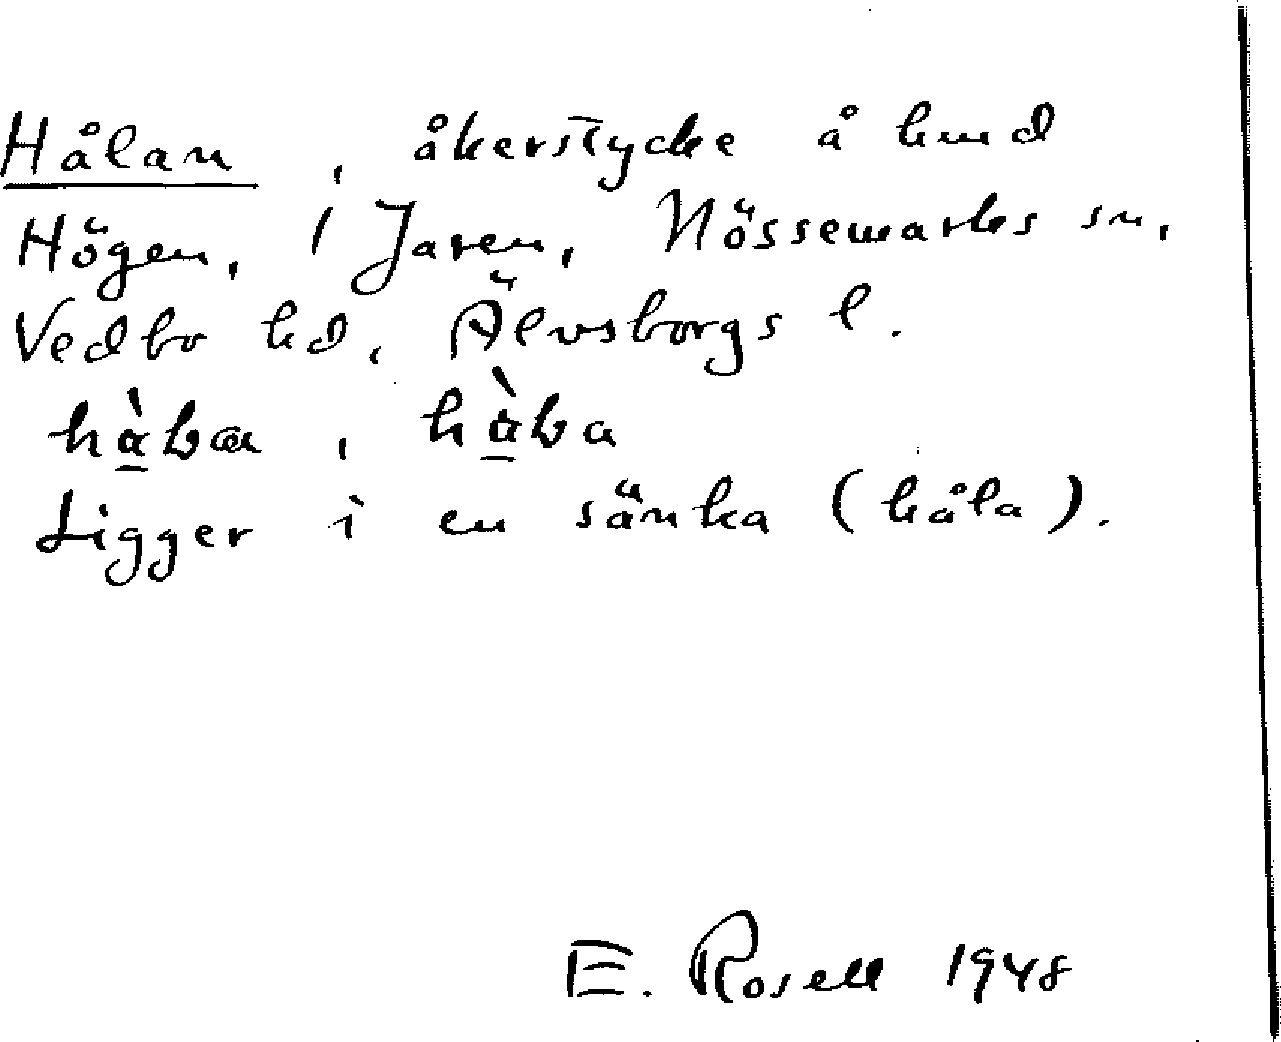 Hålan, åkerstycke å hmd
Högen, 1 Jaren, Nössemarks sn,
Vedbo hd, Älvsborgs l.
Ligger i en sänka (håla).
E. Rosell 1948